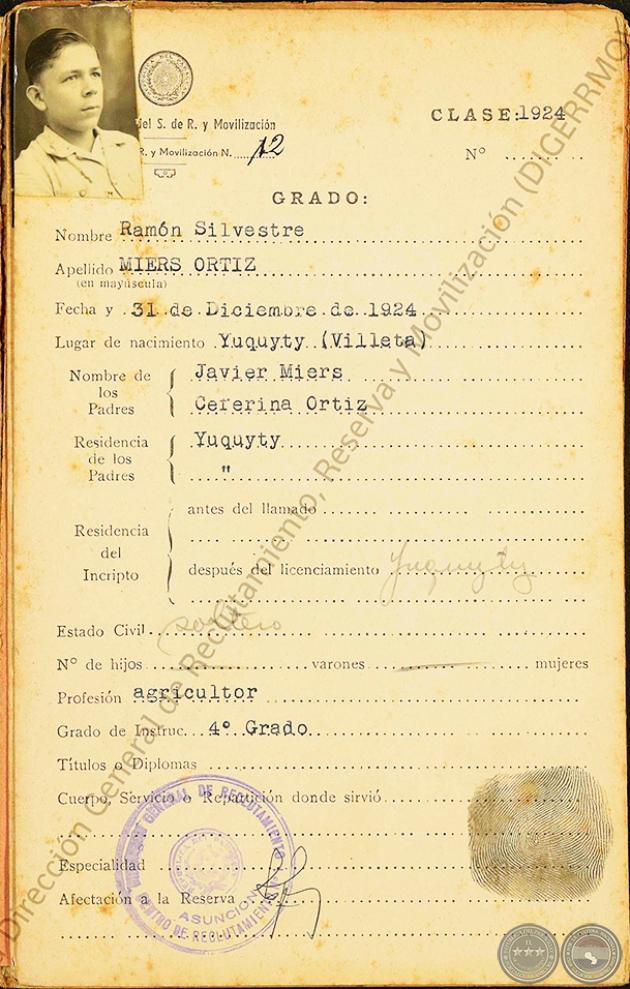 del S. de R. y Movilización
R. y Movilización N. 12
CLASE: 1924
Nº
GRADO:
Nombre Ramón Silvestre
Apellido MIERS ORTIZ
(en mayúscula)
Fecha y 31 de Diciembre de 1924
Lugar de nacimiento Yuquyty (Villeta)
Nombre de los Padres Javier Miers
Cererina Ortiz
Residencia de los Padres Yuquyty
"
Residencia del Incripto antes del llamado
después del licenciamiento Yuquyty
Estado Civil soltero
Nº de hijos varones mujeres
Profesión agricultor
Grado de Instruc. 4º Grado
Títulos o Diplomas
Cuerpo, Servicio o Repartición donde sirvió
Especialidad
Afectación a la Reserva
DIRECCION GENERAL DE RECLUTAMIENTO
CENTRO DE RECLUTAMIENTO
ASUNCION
Dirección General de Reclutamiento, Reserva y Movilización (DIGERRMO